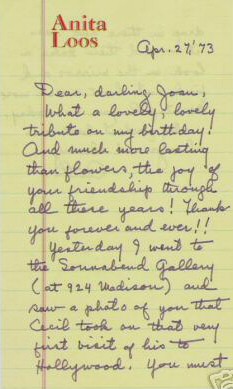 Anita
Loos
Apr. 27,'73
Dear, darling Joan,
What a lovely, lovely
tribute on my birthday!
And much more lasting
than flowers, the joy of
your friendship through
all these years! Thank
you forever and ever!!
Yesterday I went to
the Sonnabend Gallery
(at 924 Madison) and
saw a photo of you that
Cecil took on that very
first visit of his to
Hollywood. You must